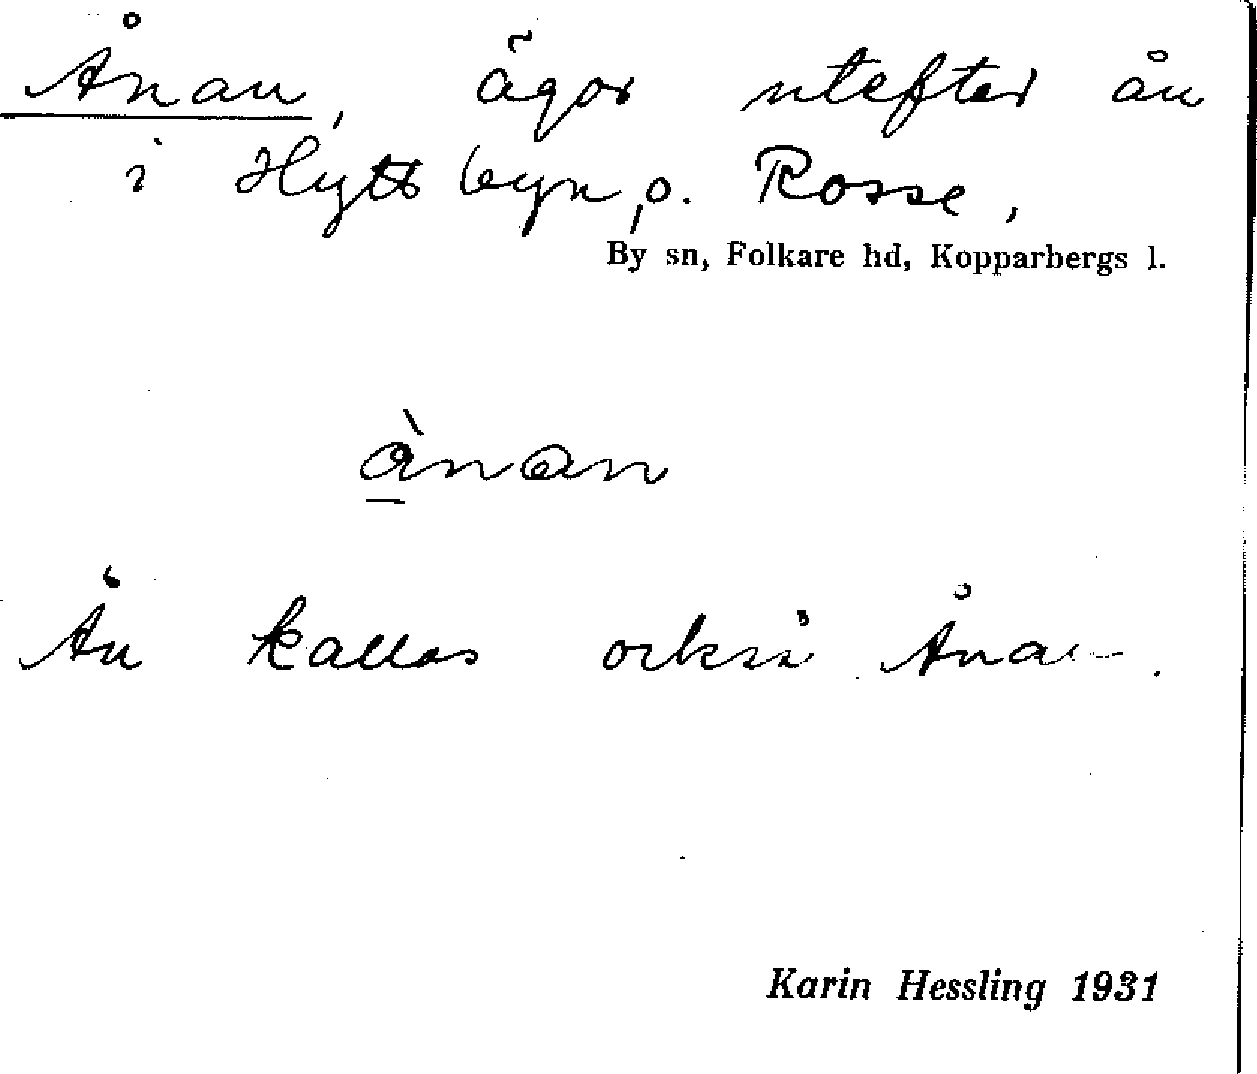 Ånan, ägor utefter ån
i Hyttbyn, o. Rosse,
By sn, Folkare hd, Kopparbergs l.
ànan
Ån kallas också Ånan.
Karin Hessling 1931